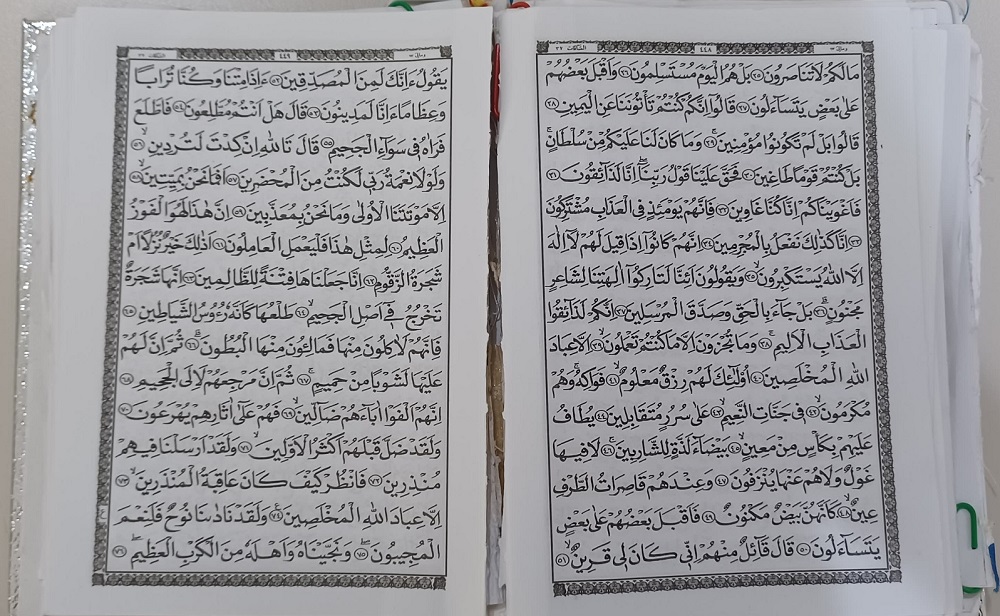 ومالى ٢٣
٤٤٨
الصّافّات ٣٧
مَالَكُمْ لَاتَنَاصَرُونَ ﴿٢٥﴾ بَلْ هُمُ الْيَوْمَ مُسْتَسْلِمُونَ ﴿٢٦﴾ وَاَقْبَلَ بَعْضُهُمْ
عَلٰى بَعْضٍ يَتَسَاءَلُونَ ﴿٢٧﴾ قَالُوا اِنَّكُمْ كُنْتُمْ تَأْتُونَنَا عَنِ الْيَمِينِ ﴿٢٨﴾
قَالُوا بَلْ لَمْ تَكُونُوا مُؤْمِنِينَ ﴿٢٩﴾ وَمَا كَانَ لَنَا عَلَيْكُمْ مِنْ سُلْطَانٍ
بَلْ كُنْتُمْ قَوْمًا طَاغِينَ ﴿٣٠﴾ فَحَقَّ عَلَيْنَا قَوْلُ رَبِّنَا اِنَّا لَذَائِقُونَ ﴿٣١﴾
فَاَغْوَيْنَاكُمْ اِنَّا كُنَّا غَاوِينَ ﴿٣٢﴾ فَاِنَّهُمْ يَوْمَئِذٍ فِى الْعَذَابِ مُشْتَرِكُونَ
﴿٣٣﴾ اِنَّا كَذٰلِكَ نَفْعَلُ بِالْمُجْرِمِينَ ﴿٣٤﴾ اِنَّهُمْ كَانُوا اِذَا قِيلَ لَهُمْ لَا اِلٰهَ
اِلَّا اللّٰهُ يَسْتَكْبِرُونَ ﴿٣٥﴾ وَيَقُولُونَ اَئِنَّا لَتَارِكُوا اٰلِهَتِنَا لِشَاعِرٍ
مَجْنُونٍ ﴿٣٦﴾ بَلْ جَاءَ بِالْحَقِّ وَصَدَّقَ الْمُرْسَلِينَ ﴿٣٧﴾ اِنَّكُمْ لَذَائِقُوا
الْعَذَابِ الْاَلِيمِ ﴿٣٨﴾ وَمَا تُجْزَوْنَ اِلَّا مَا كُنْتُمْ تَعْمَلُونَ ﴿٣٩﴾ اِلَّا عِبَادَ
اللّٰهِ الْمُخْلَصِينَ ﴿٤٠﴾ اُولٰئِكَ لَهُمْ رِزْقٌ مَعْلُومٌ ﴿٤١﴾ فَوَاكِهُ وَهُمْ
مُكْرَمُونَ ﴿٤٢﴾ فِى جَنَّاتِ النَّعِيمِ ﴿٤٣﴾ عَلٰى سُرُرٍ مُتَقَابِلِينَ ﴿٤٤﴾ يُطَافُ
عَلَيْهِمْ بِكَأْسٍ مِنْ مَعِينٍ ﴿٤٥﴾ بَيْضَاءَ لَذَّةٍ لِلشَّارِبِينَ ﴿٤٦﴾ لَا فِيهَا
غَوْلٌ وَلَا هُمْ عَنْهَا يُنْزَفُونَ ﴿٤٧﴾ وَعِنْدَهُمْ قَاصِرَاتُ الطَّرْفِ
عِينٌ ﴿٤٨﴾ كَاَنَّهُنَّ بَيْضٌ مَكْنُونٌ ﴿٤٩﴾ فَاَقْبَلَ بَعْضُهُمْ عَلٰى بَعْضٍ
يَتَسَاءَلُونَ ﴿٥٠﴾ قَالَ قَائِلٌ مِنْهُمْ اِنِّى كَانَ لِى قَرِينٌ ﴿٥١﴾
ومالى ٢٣
٤٤٩
الصّافّات ٣٧
يَقُولُ ءَاِنَّكَ لَمِنَ الْمُصَدِّقِينَ ﴿٥٢﴾ ءَاِذَا مِتْنَا وَكُنَّا تُرَابًا
وَعِظَامًا ءَاِنَّا لَمَدِينُونَ ﴿٥٣﴾ قَالَ هَلْ اَنْتُمْ مُطَّلِعُونَ ﴿٥٤﴾ فَاطَّلَعَ
فَرَاٰهُ فِى سَوَاءِ الْجَحِيمِ ﴿٥٥﴾ قَالَ تَاللّٰهِ اِنْ كِدْتَ لَتُرْدِينِ ﴿٥٦﴾
وَلَوْلَا نِعْمَةُ رَبِّى لَكُنْتُ مِنَ الْمُحْضَرِينَ ﴿٥٧﴾ اَفَمَا نَحْنُ بِمَيِّتِينَ ﴿٥٨﴾
اِلَّا مَوْتَتَنَا الْاُولٰى وَمَا نَحْنُ بِمُعَذَّبِينَ ﴿٥٩﴾ اِنَّ هٰذَا لَهُوَ الْفَوْزُ
الْعَظِيمُ ﴿٦٠﴾ لِمِثْلِ هٰذَا فَلْيَعْمَلِ الْعَامِلُونَ ﴿٦١﴾ اَذٰلِكَ خَيْرٌ نُزُلًا اَمْ
شَجَرَةُ الزَّقُّومِ ﴿٦٢﴾ اِنَّا جَعَلْنَاهَا فِتْنَةً لِلظَّالِمِينَ ﴿٦٣﴾ اِنَّهَا شَجَرَةٌ
تَخْرُجُ فِى اَصْلِ الْجَحِيمِ ﴿٦٤﴾ طَلْعُهَا كَاَنَّهُ رُؤُوسُ الشَّيَاطِينِ ﴿٦٥﴾
فَاِنَّهُمْ لَاٰكِلُونَ مِنْهَا فَمَالِؤُنَ مِنْهَا الْبُطُونَ ﴿٦٦﴾ ثُمَّ اِنَّ لَهُمْ
عَلَيْهَا لَشَوْبًا مِنْ حَمِيمٍ ﴿٦٧﴾ ثُمَّ اِنَّ مَرْجِعَهُمْ لَاِلَى الْجَحِيمِ ﴿٦٨﴾
اِنَّهُمْ اَلْفَوْا اٰبَاءَهُمْ ضَالِّينَ ﴿٦٩﴾ فَهُمْ عَلٰى اٰثَارِهِمْ يُهْرَعُونَ ﴿٧٠﴾
وَلَقَدْ ضَلَّ قَبْلَهُمْ اَكْثَرُ الْاَوَّلِينَ ﴿٧١﴾ وَلَقَدْ اَرْسَلْنَا فِيهِمْ
مُنْذِرِينَ ﴿٧٢﴾ فَانْظُرْ كَيْفَ كَانَ عَاقِبَةُ الْمُنْذَرِينَ ﴿٧٣﴾
اِلَّا عِبَادَ اللّٰهِ الْمُخْلَصِينَ ﴿٧٤﴾ وَلَقَدْ نَادٰينَا نُوحٌ فَلَنِعْمَ
الْمُجِيبُونَ ﴿٧٥﴾ وَنَجَّيْنَاهُ وَاَهْلَهُ مِنَ الْكَرْبِ الْعَظِيمِ ﴿٧٦﴾